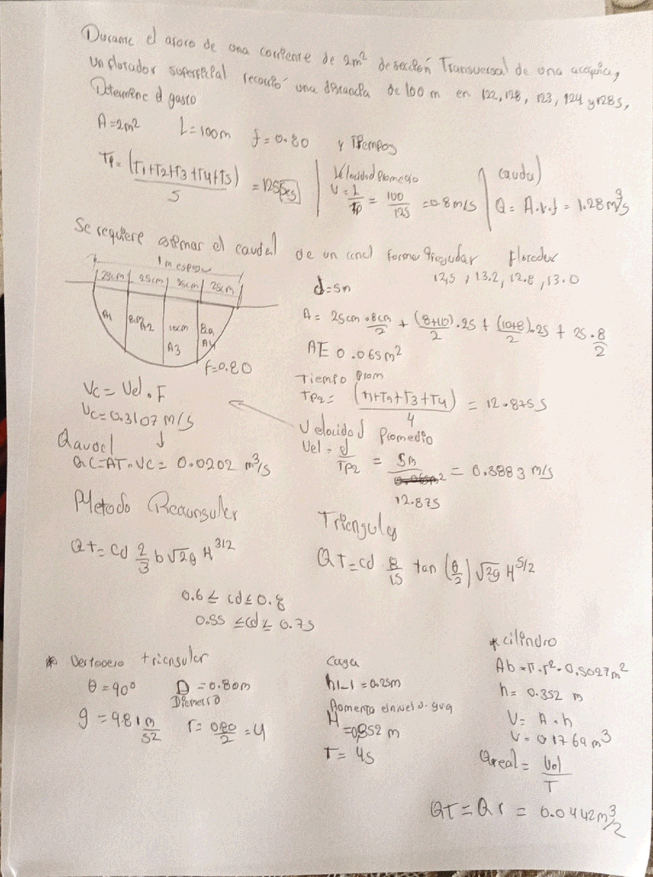 Durante el aforo de una corriente de 2m² de sección Transversal de una acequia,
Un flotador superficial recorrió una distancia de 100 m en 122, 128, 123, 124 y 128 s,
Determine el gasto
A = 2m² L = 100m f = 0.80 y Tiempos
Tp = (T1+T2+T3+T4+T5) / 5 = 125 seg
Velocidad Promedio
V = L/Tp = 100/125 = 0.8 m/s
Caudal
Q = A.v.f = 1.28 m³/s
Se requiere estimar el caudal de un canal forma irregular flotador
12,5 , 13.2, 12.8, 13.0
1m espejo
25cm 25cm 25cm 25cm
A1 8cm A2 10cm A3 8cm A4
f=0.80
d=5m
A = 25cm . 8cm/2 + (8+10)/2 . 25 + (10+8)/2 . 25 + 25 . 8/2
AE 0.065m²
Tiempo Prom
TP2 = (T1+T2+T3+T4) / 4 = 12.875 s
Vc = Vel . F
Vc = 0.3107 m/s
Velocidad Promedio
Vel = d/TP2 = 5m / 12.875 = 0.3883 m/s
Qaudal
QC = AT . VC = 0.0202 m³/s
Metodo
Triangular
QT = Cd 2/3 b √2g H^3/2
QT = cd 8/15 tan (θ/2) √2g H^5/2
0.6 ≤ cd ≤ 0.8
0.55 ≤ cd ≤ 0.75
* Vertedero triangular
θ = 90° D = 0.80m
Diametro
g = 9.81 m/s2 r = 0.80/2 = 4
Caja
= 0.25m
Aumento
H = 0.352 m
T = 4s
* cilindro
Ab = π . r² = 0.5027 m²
h = 0.352 m
V = A . h
V = 0.1769 m³
Qreal = Vol/T
QT = Qr = 0.0442 m³/2